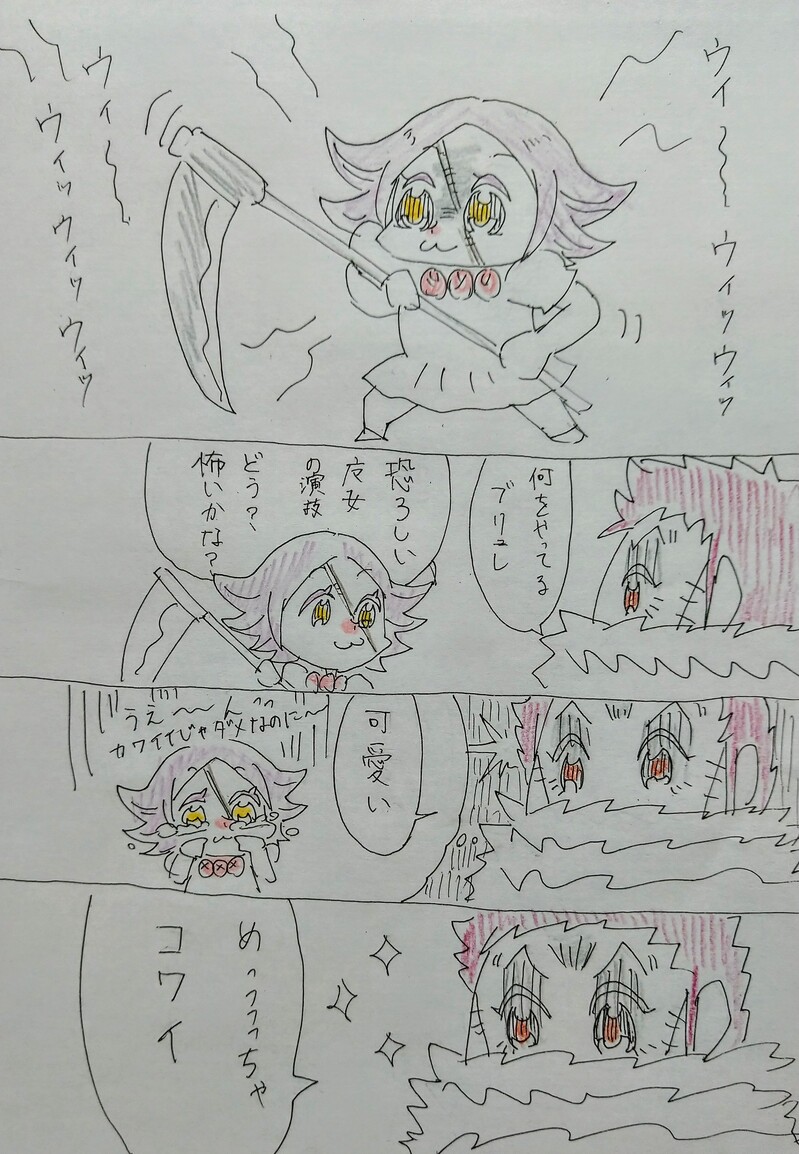 ウィ〜〜
ウィッウィッ
ウィ〜〜
ウィッウィッウィッ
何をやってる
ブリュレ
恐ろしい
魔女
の演技
どう？、
怖いかな？
可愛い
うえ〜〜んっっ
カワイイじゃダメなのに〜
めっっっっちゃ
コワイ